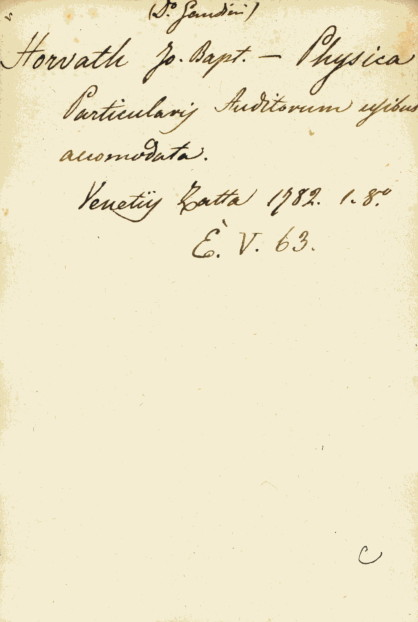 (D.º Gandini)
Horvath Jo. Bapt. — Physica
Particularis Auditorum usibus
accomodata.
Venetiis Zatta 1782. 1. 8.º
È. V. 63.
C